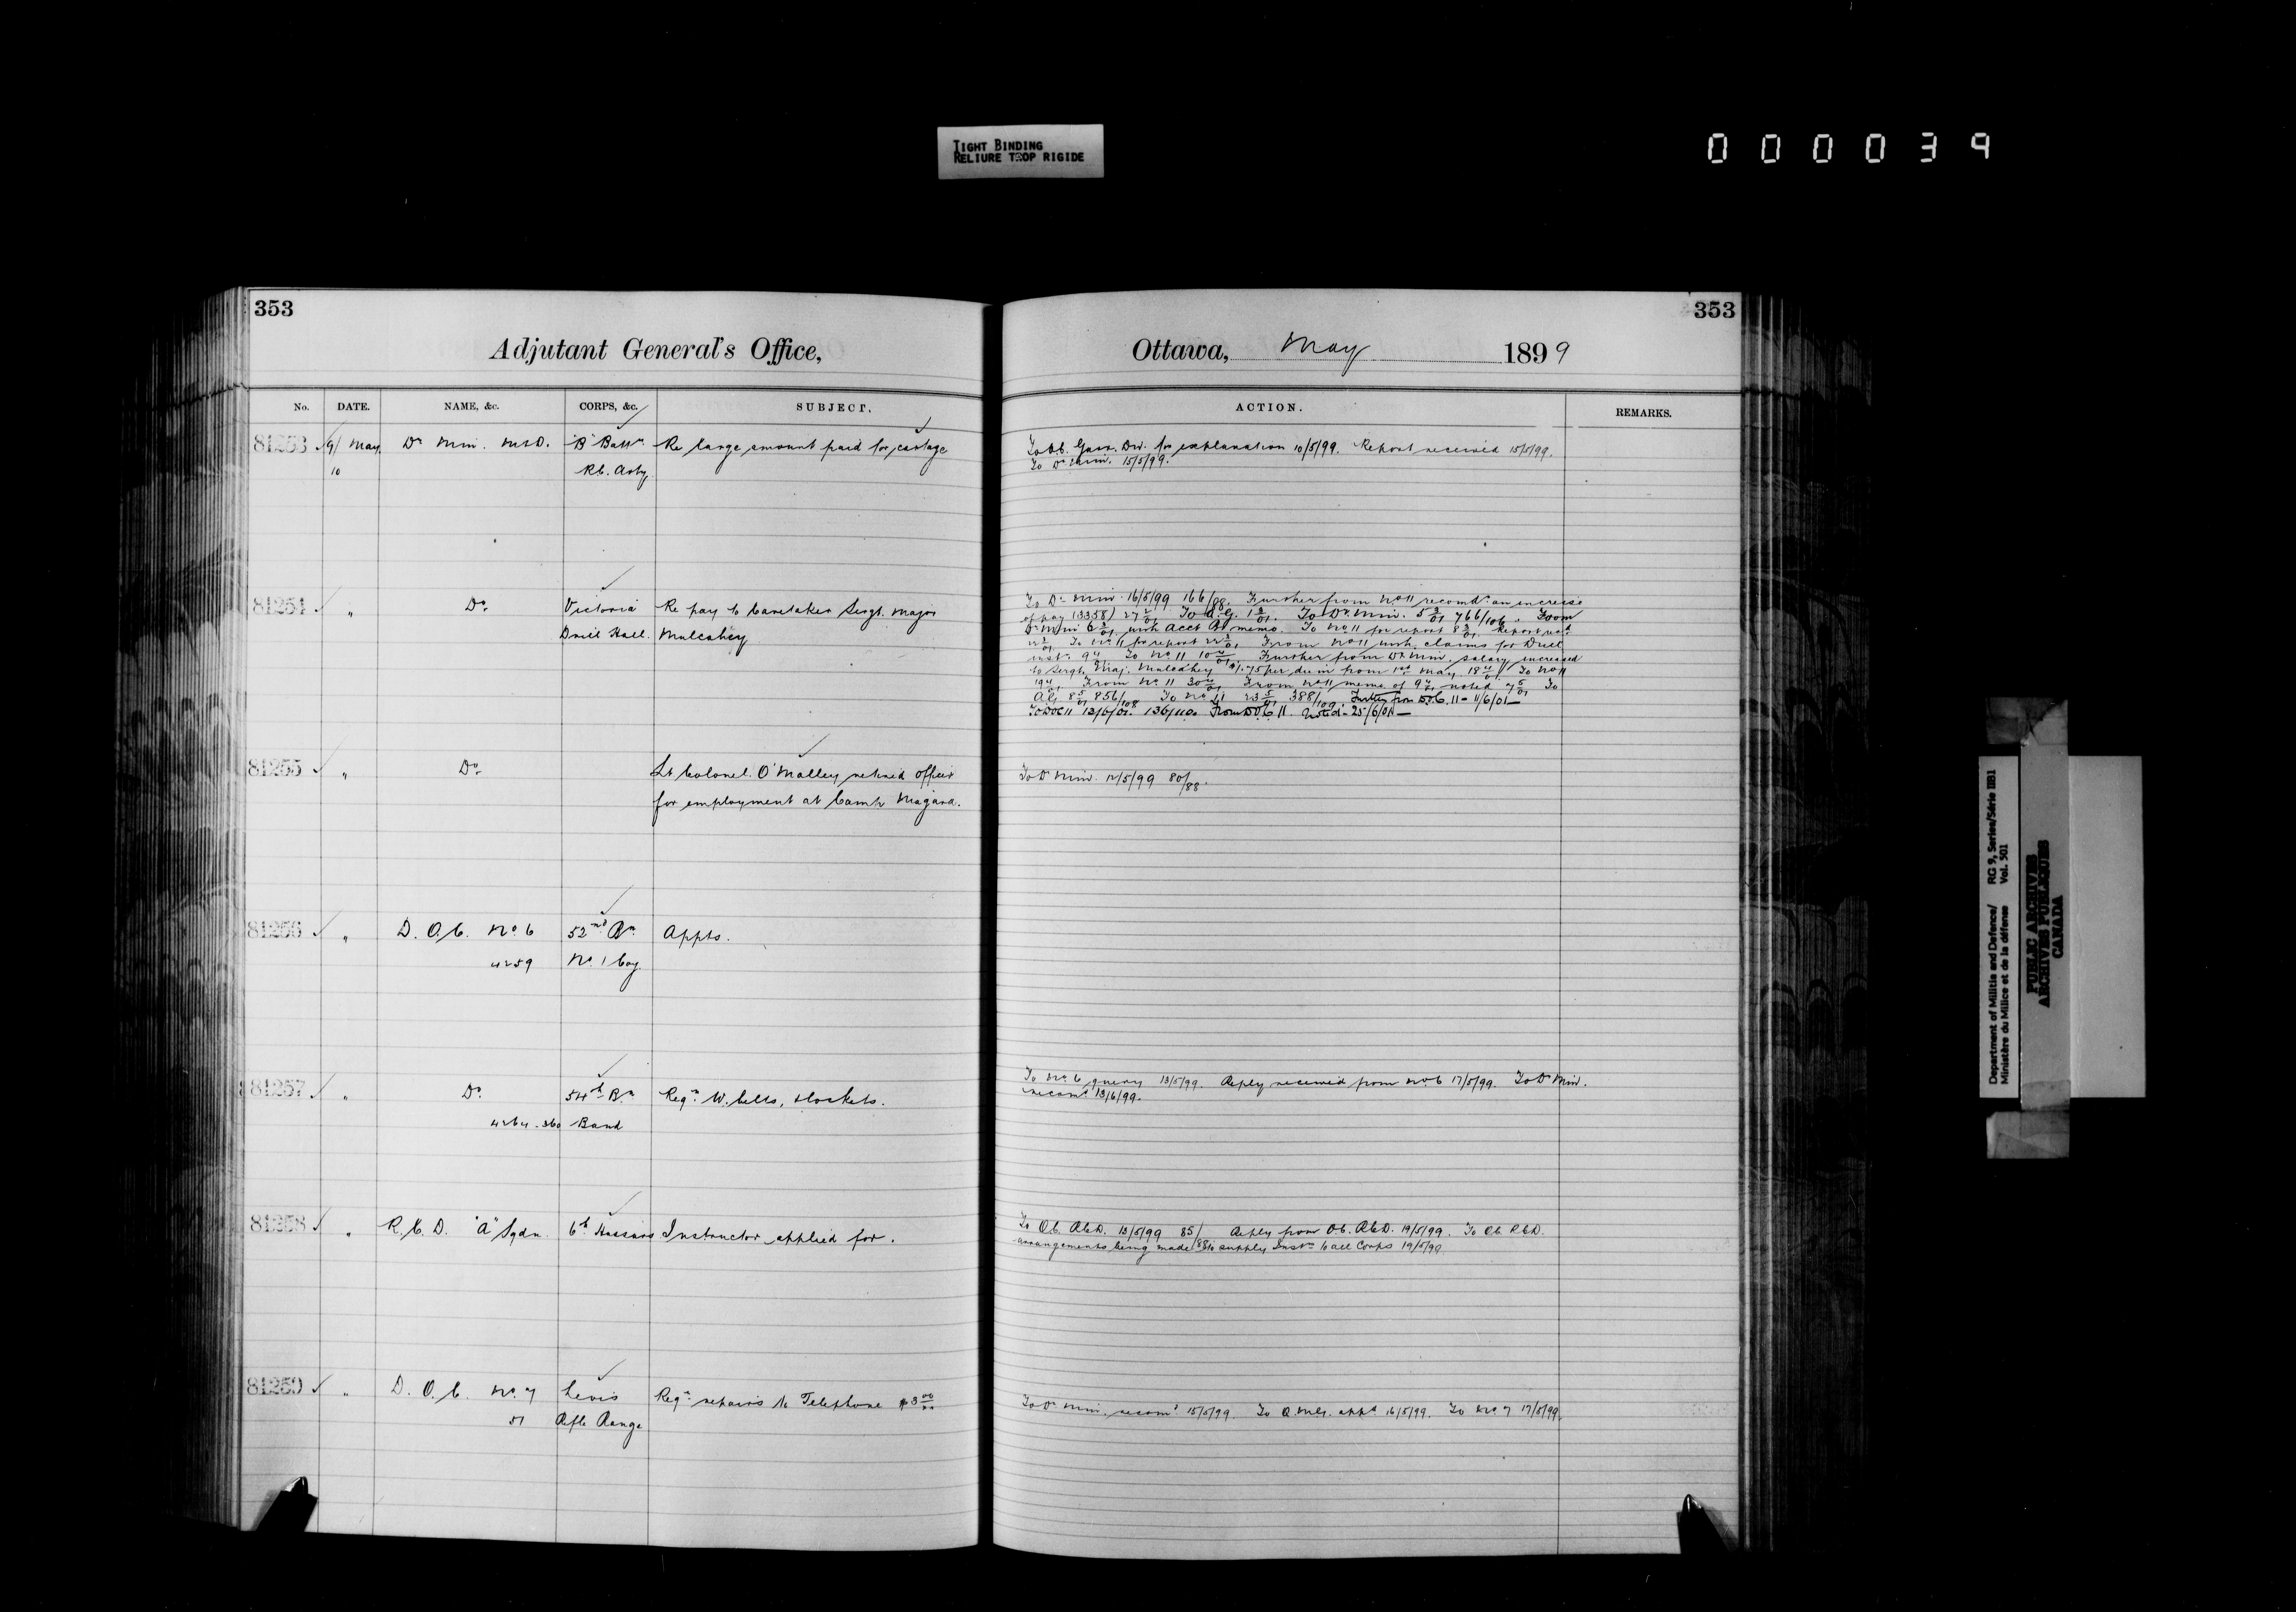 TIGHT BINDING
RELIURE TROP RIGIDE
000039
353
353
Adjutant General's Office,
Ottawa, May 1899
No. DATE. NAME, &c. CORPS, &c. SUBJECT. ACTION. REMARKS.
81253 9/ May Dr Min. M&D. "B" Batty Re large amount paid for cartage
10 R.C. Arty.
To O.C. Garr. Div. for explanation 10/5/99. Report received 15/5/99.
To Dr Min. 15/5/99.
81254 " Do Victoria Re pay to Caretaker Sergt. Major
Drill Hall. Mulcahey
To Dr Min. 16/5/99 166/88. Further from No 11 recomdg an increase
of pay (3358) 27 2/01 To A.G. 1 3/01. To Dr Min. 5 3/01 766/106. From
Dr Min 6 3/01 with Acct Br memo. To No 11 for report 8 3/01 Report
To No 11 for report 22 From No 11 with claims for Drill
Inst. 9 To No 11 10 4/01 Further from Dr Min. salary increased
to Sergt. Maj. Mulcahey per diem from 1st May. 18 4/01 To No 11
19 4/01 From No 11 30 4/01 From No 11 memo of 9 noted 7 5/01 To
A.G. 8 5/01 856/108 To No 11 23 5/01 388/109. Further from D.O.C. 11 - 11/6/01 —
To DOC 11 13/6/01. 136/110. From D.O.C. 11. noted - 25/6/01 —
81255 " Do Lt Colonel O'Malley retired officer
for employment at Camp Niagara.
To Dr Min. 12/5/99 80/88.
81256 " D. O. C. No. 6 52nd Bn Appts.
4259 No. 1 Coy.
81257 " Do 54th Bn Reqn W. belts, & lockets.
4264. 360 Band
To No. 6 query 13/5/99. Reply received from No 6 17/5/99. To Dr Min.
recomd 13/6/99.
81258 " R. C. D. "A" Sqdn. 6th Hussars Instructor applied for.
To O.C. R.C.D. 13/5/99 85/88 Reply from O.C. R.C.D. 19/5/99. To O.C. R.C.D.
arrangements being made to supply Instrs to all Corps 19/5/99
81259 " D. O. C. No. 7 Levis Reqn repairs to Telephone $3 00/00
51 Rifle Range
To Dr Min. recomd 15/5/99. To Q.M.G. appd 16/5/99. To No 7 17/5/99.
Department of Militia and Defence/ RG 9, Series/Série IIB1
Ministère du Milice et de la défense Vol. 501
PUBLIC ARCHIVES
ARCHIVES PUBLIQUES
CANADA